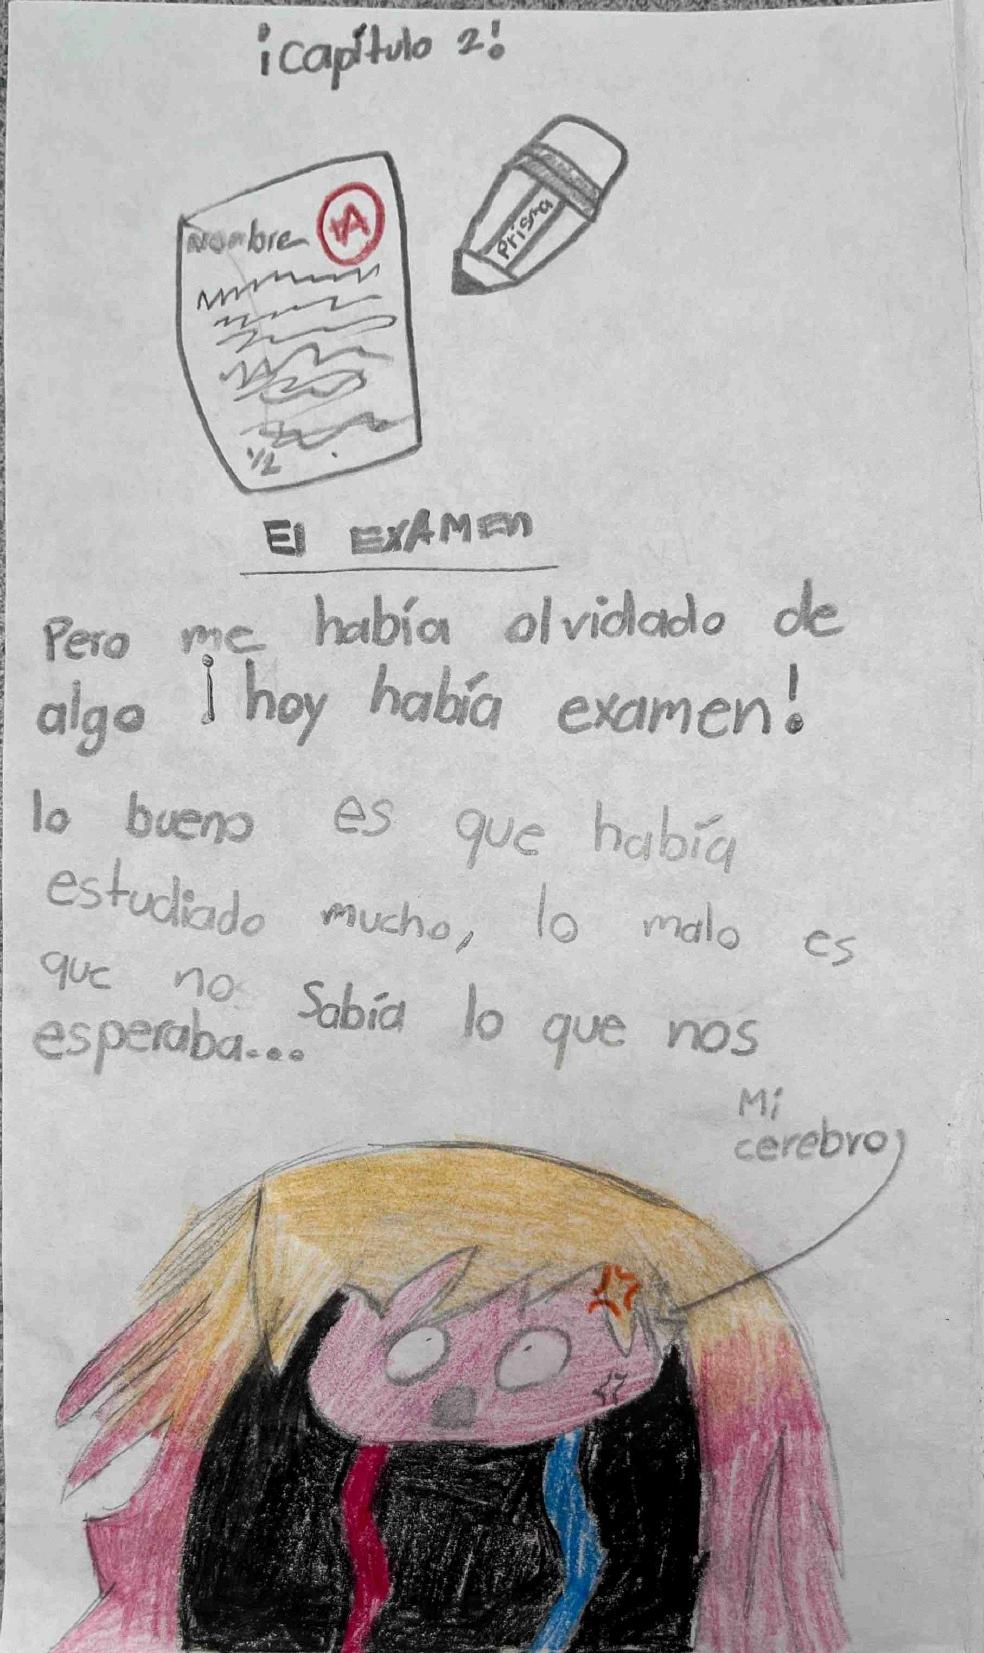 ¡Capítulo 2!
Nombre
+A
Prisma
1/2
El EXAMEn
Pero me había olvidado de
algo ¡hoy había examen!
lo bueno es que había
estudiado mucho, lo malo es
que no sabía lo que nos
esperaba...
Mi
cerebro